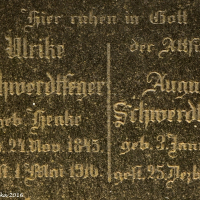 Hier ruhen in Gott
Ulrike
hwerdtfeger
geb. Henke
24. Nov. 1845.
st. 1. Mai 1916.
der Altsi
Augu
Schwerdt
geb. 3. Jan
gest. 25. Dezb
ka 2016